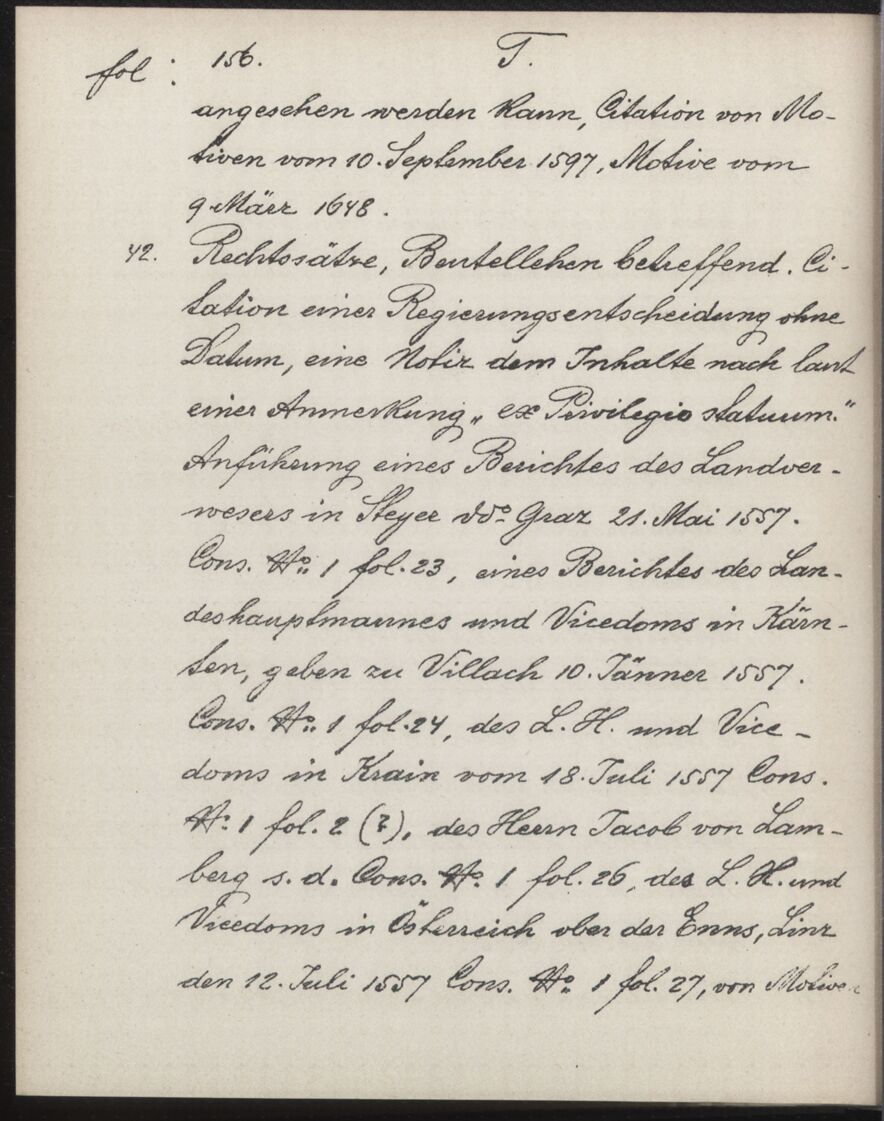 fol: 156. T.
angesehen werden kann, Citation von Mo-
tiven vom 10. September 1597, Motive vom
9. März 1648.
42. Rechtssätze, Beutellehen betreffend. Ci-
tation einer Regierungsentscheidung ohne
Datum, eine Notiz dem Inhalte nach laut
einer Anmerkung „ex Privilegio statuum."
Anführung eines Berichtes des Landver-
wesers in Steyer ddo Graz 21. Mai 1557.
Cons. No. 1 fol. 23, eines Berichtes des Lan-
deshauptmannes und Vicedoms in Kärn-
ten, geben zu Villach 10. Jänner 1557.
Cons. No. 1 fol. 24, des L. H. und Vice-
doms in Krain vom 18. Juli 1557 Cons.
No. 1 fol. 2 (?), des Herrn Jacob von Lam-
berg s. d. Cons. No. 1 fol. 26, des L. H. und
Vicedoms in Österreich ober der Enns, Linz
den 12. Juli 1557 Cons. No. 1 fol. 27, von Motiven